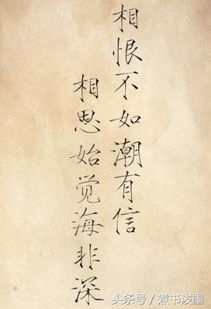 相恨不如潮有信
相思始觉海非深
头条号/